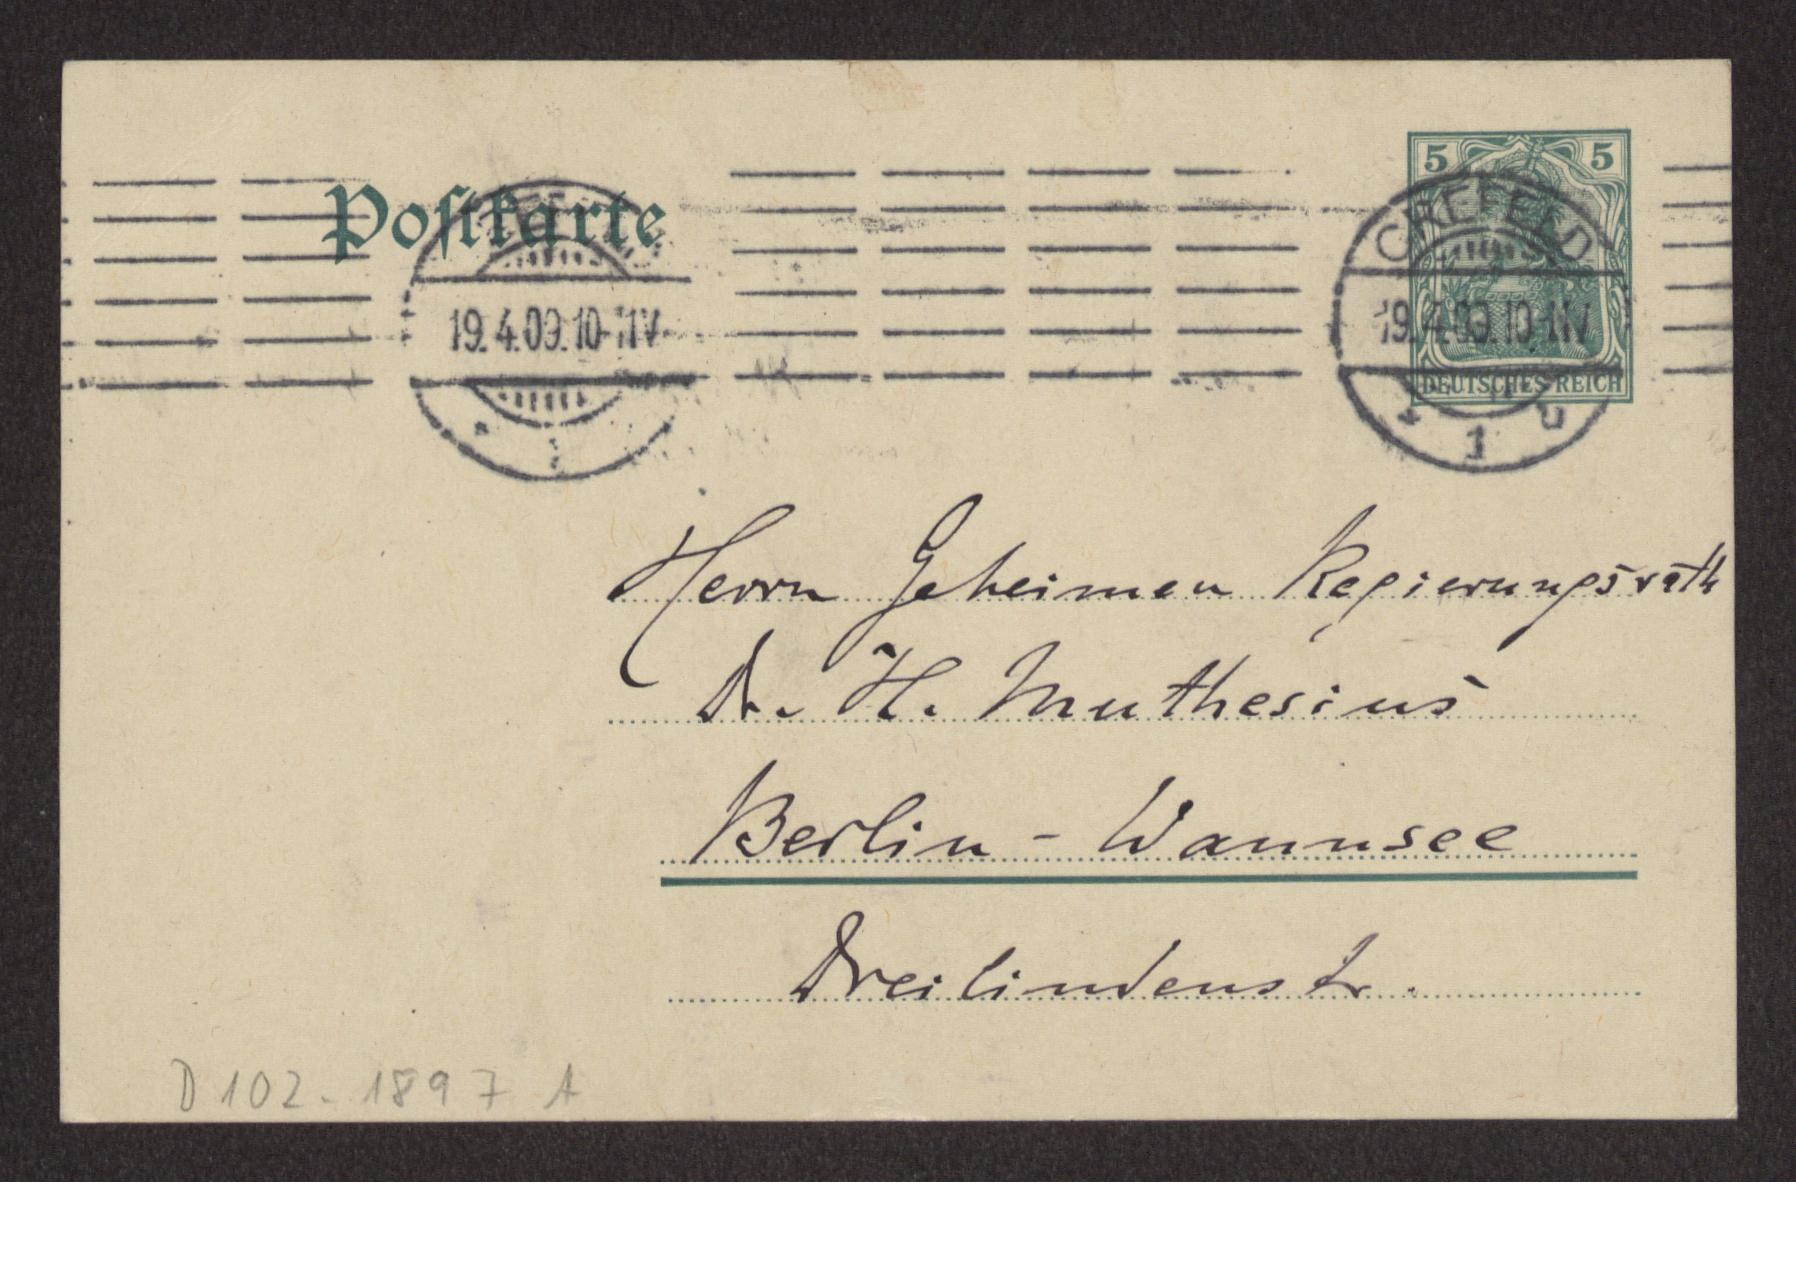 Postkarte
5 5
CREFELD
19.4.09.10-11V.
19.4.09.10-11V
DEUTSCHES REICH
* 1
* 1 u
Herrn Geheimen Regierungsrath
Dr. H. Muthesius
Berlin - Wannsee
Dreilindenstr.
D 102 - 1897 A